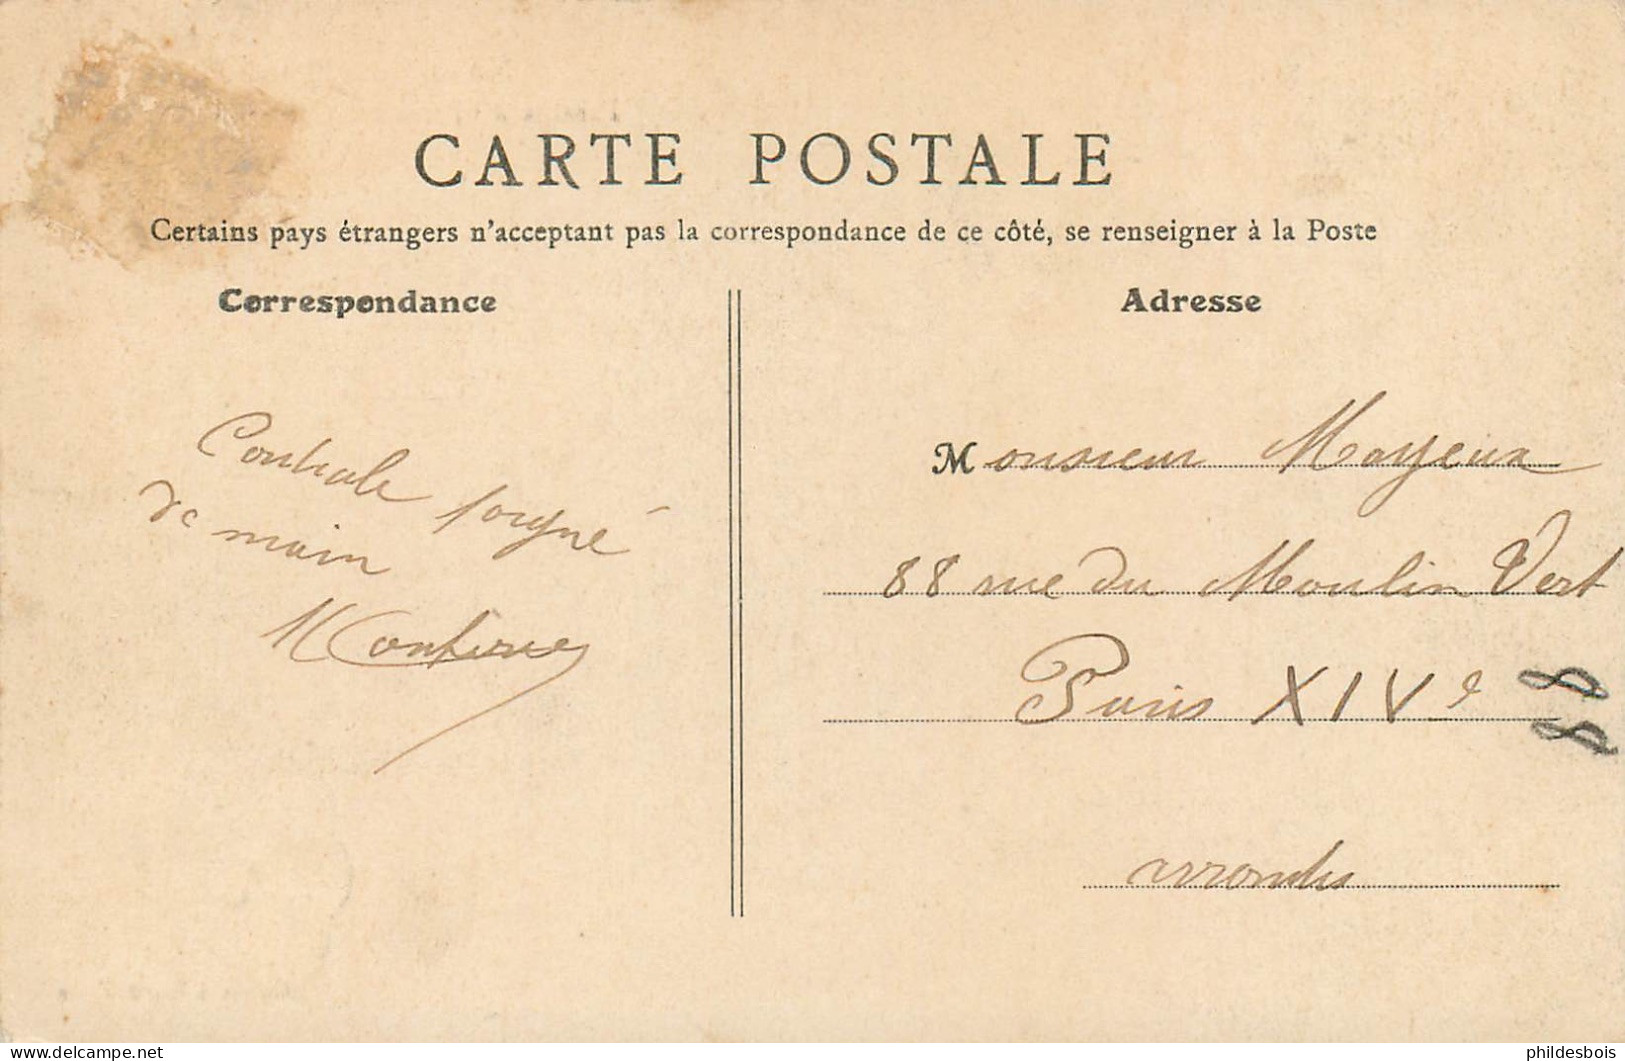 CARTE POSTALE
Certains pays étrangers n'acceptant pas la correspondance de ce côté, se renseigner à la Poste
Correspondance
Adresse
Controle soigné
de main
Monsieur Mayeux
88 rue du Moulin Vert
Paris XIVe
88
phildesbois